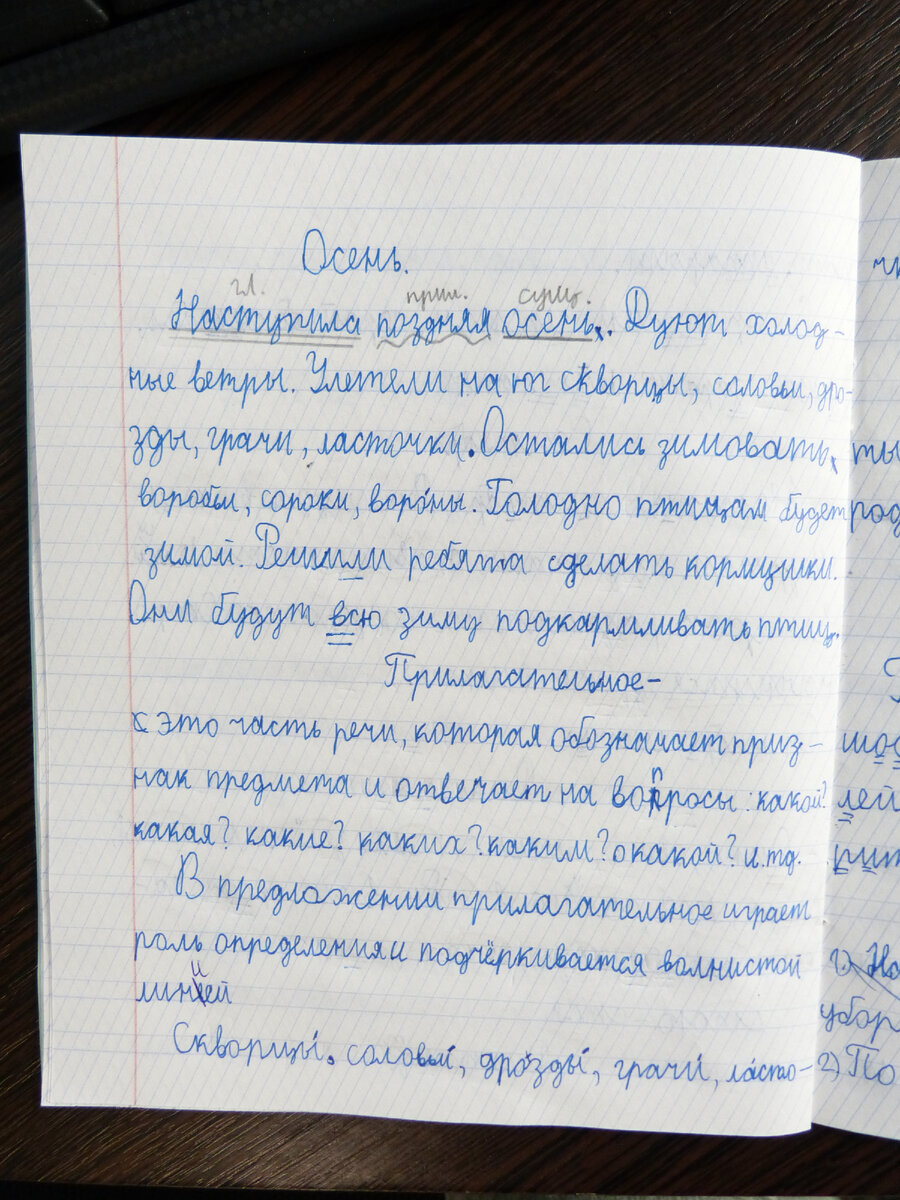 Осень.
гл. прил. сущ.
Наступила поздняя осень. Дуют холод-
ные ветры. Улетели на юг скворцы, соловьи, дро-
зды, грачи, ласточки. Остались зимовать
воробьи, сороки, вороны. Голодно птицам будет
зимой. Решили ребята сделать кормушки.
Они будут всю зиму подкармливать птиц.
Прилагательное-
это часть речи, которая обозначает приз-
нак предмета и отвечает на вопросы: какой?
какая? какие? каких? каким? о какой? и.т.д.
В предложении прилагательное играет
роль определения и подчёркивается волнистой
линией
Скворцы́. соловьи́, дрозды́, грачи́, ла́сто-
ты
род
шос
лей
рит
1) На
убор
2) По